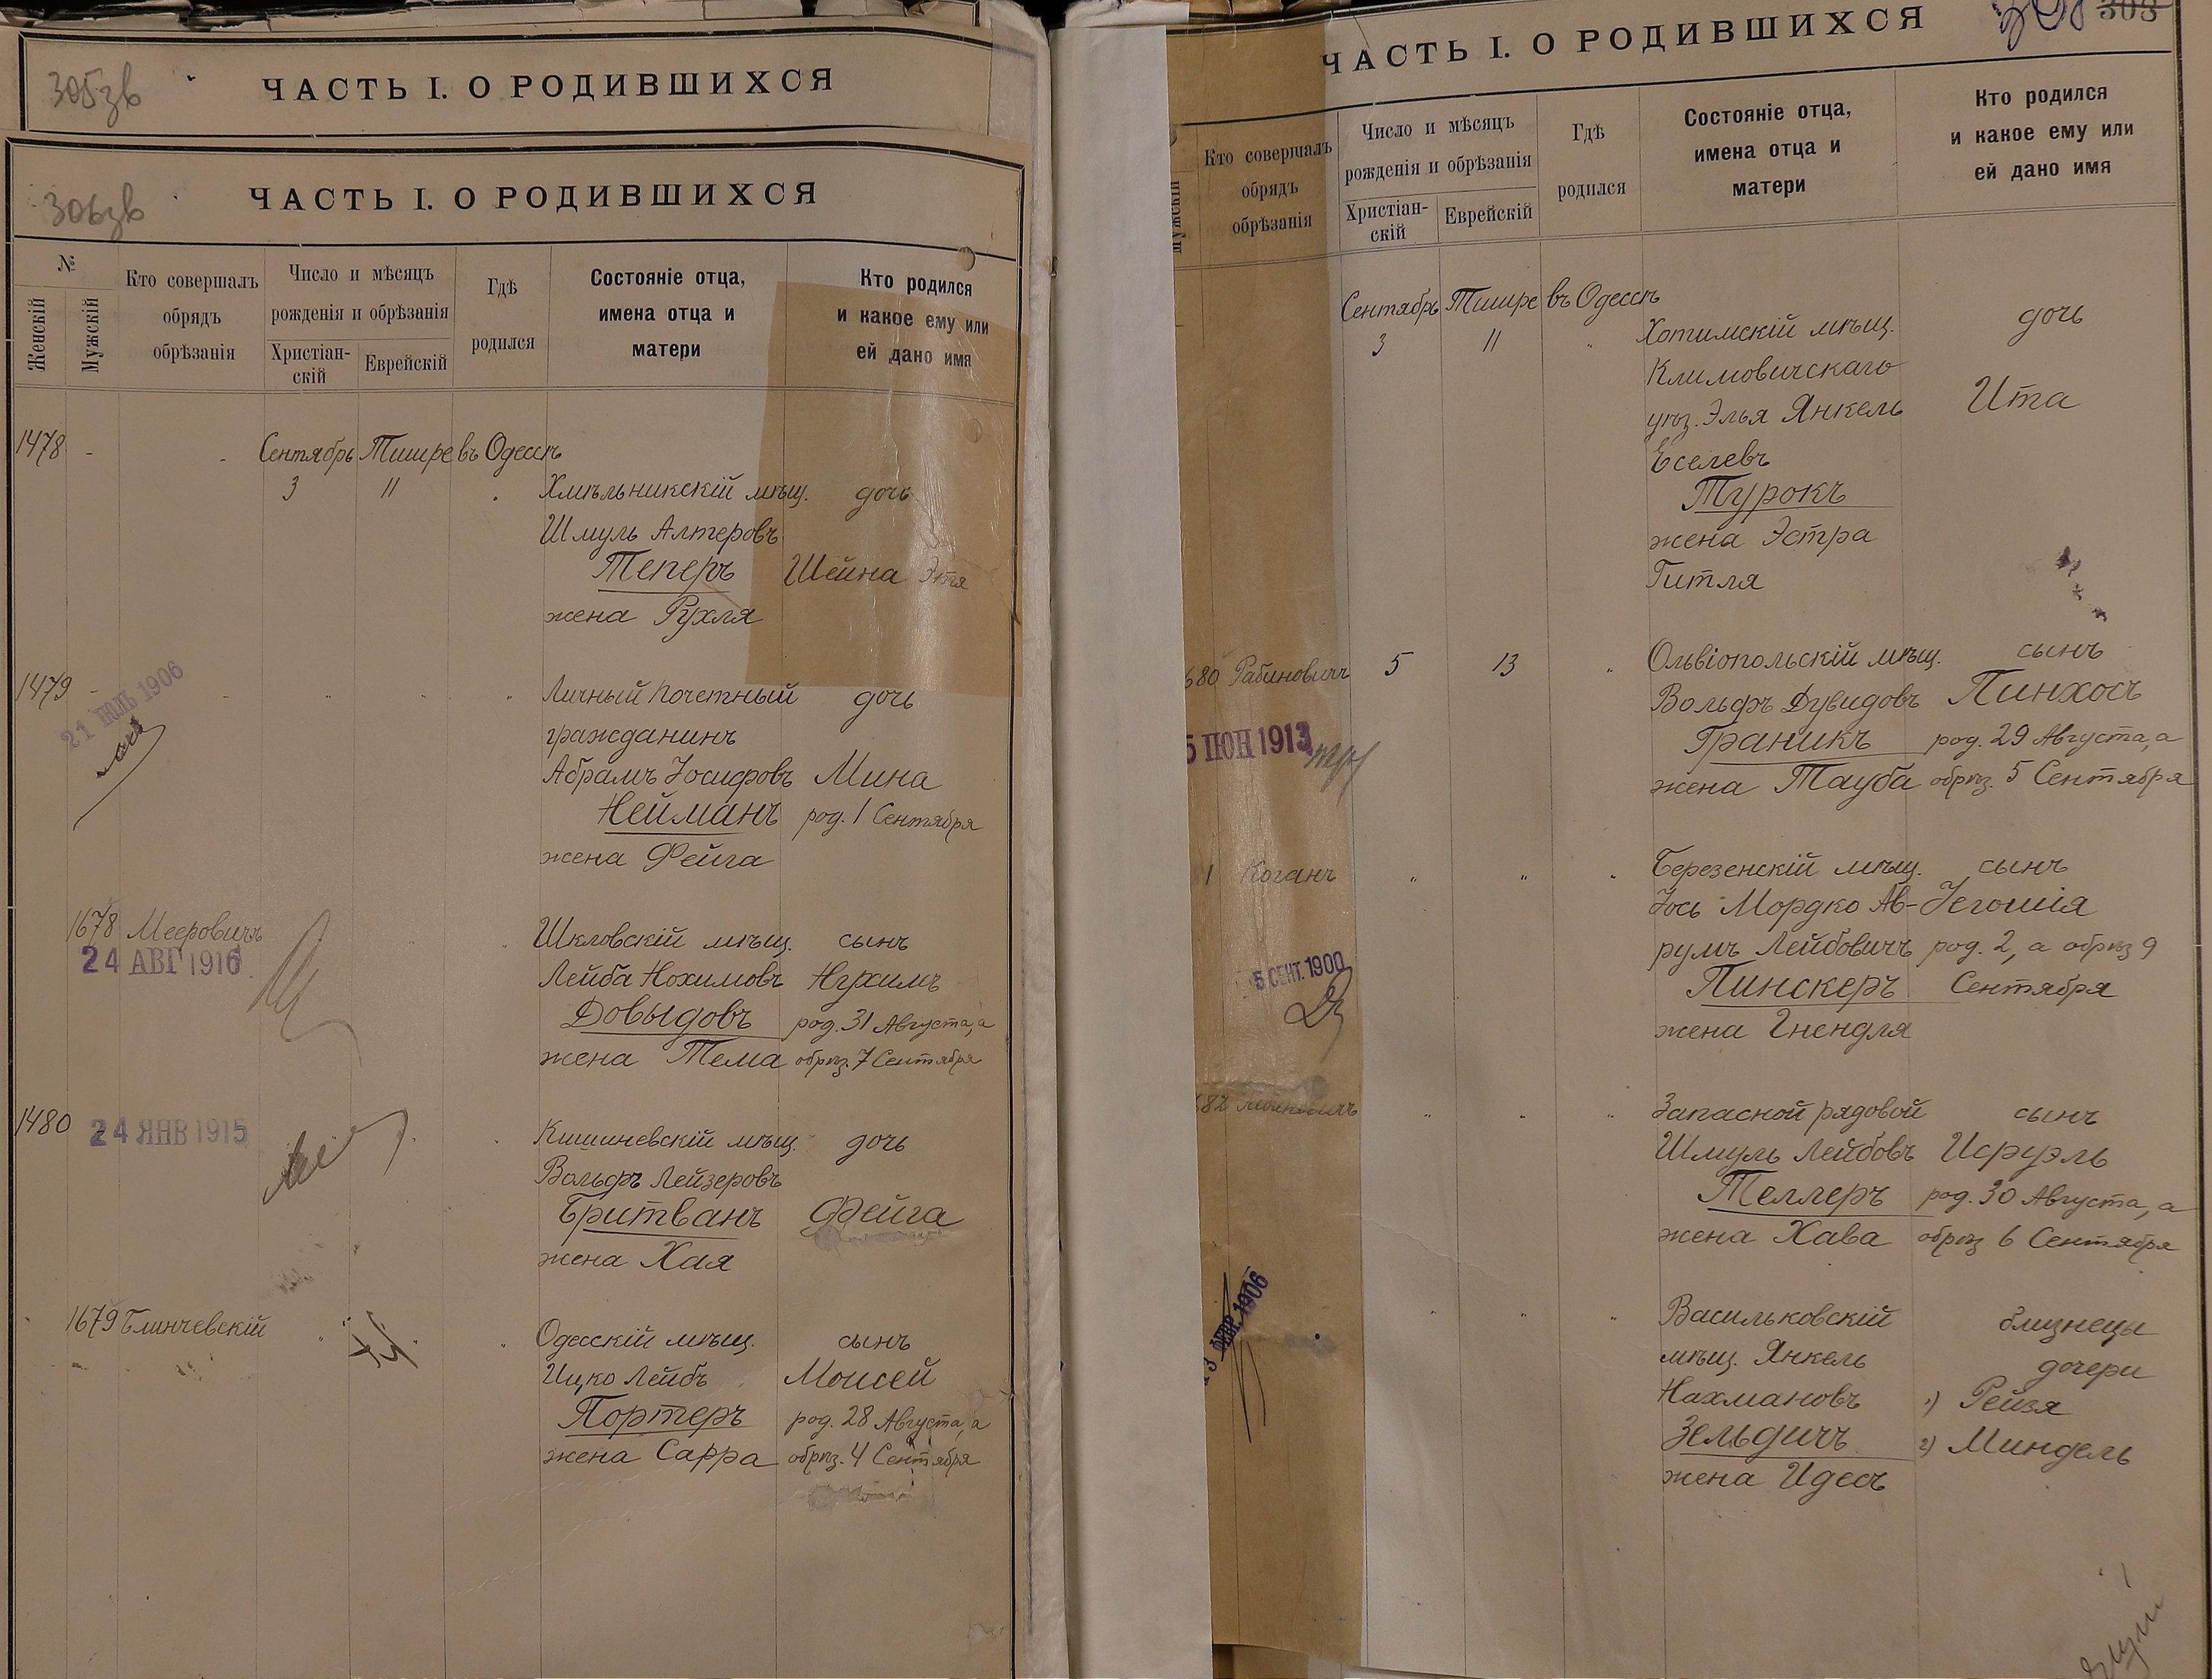 305зв
ЧАСТЬ I. О РОДИВШИХСЯ
306зв
ЧАСТЬ I. О РОДИВШИХСЯ
№
Женскій
Мужскій
Кто совершалъ
обрядъ
обрѣзанія
Число и мѣсяцъ
рожденія и обрѣзанія
Христіан-
скій
Еврейскій
Гдѣ
родился
Состояніе отца,
имена отца и
матери
Кто родился
и какое ему или
ей дано имя
1478 - - Сентябрь Тишре въ Одессѣ
3 11 Хмѣльникскій мѣщ. дочь
Шмуль Алтеровъ
Теперъ Шейна Этя
жена Рухля
1479 - - " " " Личный почетный дочь
21 ІЮЛЬ 1906
гражданинъ
Абрамъ Іосифовъ Мина
Нейманъ род. 1 Сентября
жена Фейга
1678 Мееровичъ Шкловскій мѣщ. сынъ
24 АВГ 1916
Лейба Нохимовъ Нухимъ
Довыдовъ род. 31 Августа, а
жена Тема обрѣз. 7 Сентября
1480 Кишиневскій мѣщ. дочь
24 ЯНВ 1915
Вольфъ Лейзеровъ
Бритванъ Фейга
жена Хая
1679 Блинчевскій " " Одесскій мѣщ. сынъ
Ицко Лейбъ Моисей
Портеръ род. 28 Августа, а
жена Сарра обрѣз. 4 Сентября
303
ЧАСТЬ I. О РОДИВШИХСЯ
Мужскій
Кто совершалъ
обрядъ
обрѣзанія
Число и мѣсяцъ
рожденія и обрѣзанія
Христіан-
скій
Еврейскій
Гдѣ
родился
Состояніе отца,
имена отца и
матери
Кто родился
и какое ему или
ей дано имя
Сентябрь Тишре въ Одессѣ
3 11 " Хотимскій мѣщ. дочь
Климовичскаго
уѣз. Элья Янкель Ита
Еселевъ
Турокъ
жена Эстра
Гитля
680 Рабиновичъ 5 13 " Ольвіопольскій мѣщ. сынъ
Вольфъ Дувидовъ Пинхосъ
5 ІЮН 1913
Граникъ род. 29 Августа, а
жена Тауба обрѣз. 5 Сентября
1 Коганъ " " " Березенскій мѣщ. сынъ
Іось Мордко Ав- Іегошія
румъ Лейбовичъ род. 2, а обрѣз 9
5 СЕНТ. 1900
Пинскеръ Сентября
жена Гнендля
682 " " " Запасной рядовой сынъ
Шмуль Лейбовъ Исруэль
Теллеръ род. 30 Августа, а
жена Хава обрѣз 6 Сентября
3 ФЕВР. 1906
" " " Васильковскій близнецы
мѣщ. Янкель дочери
Нахмановъ 1) Рейзя
Зельдичъ 2) Миндель
жена Идесъ